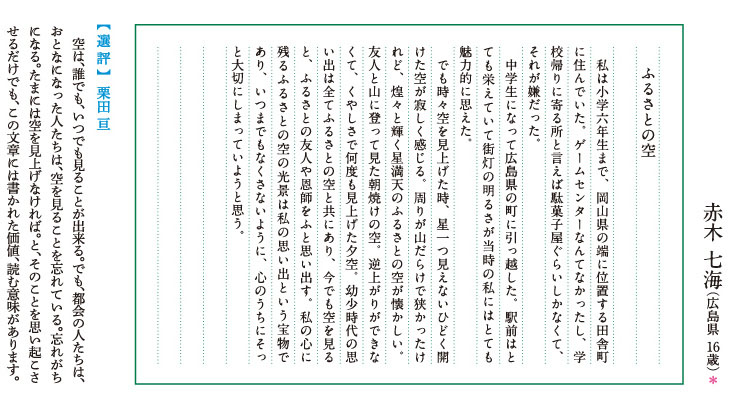 赤木 七海（広島県 16歳）＊
ふるさとの空
私は小学六年生まで、岡山県の端に位置する田舎町
に住んでいた。ゲームセンターなんてなかったし、学
校帰りに寄る所と言えば駄菓子屋ぐらいしかなくて、
それが嫌だった。
中学生になって広島県の町に引っ越した。駅前はと
ても栄えていて街灯の明るさが当時の私にはとても
魅力的に思えた。
でも時々空を見上げた時、星一つ見えないひどく開
けた空が寂しく感じる。周りが山だらけで狭かったけ
れど、煌々と輝く星満天のふるさとの空が懐かしい。
友人と山に登って見た朝焼けの空。逆上がりができな
くて、くやしさで何度も見上げた夕空。幼少時代の思
い出は全てふるさとの空と共にあり、今でも空を見る
と、ふるさとの友人や恩師をふと思い出す。私の心に
残るふるさとの空の光景は私の思い出という宝物で
あり、いつまでもなくさないように、心のうちにそっ
と大切にしまっていようと思う。
【選評】栗田 亘
空は、誰でも、いつでも見ることが出来る。でも、都会の人たちは、
おとなになった人たちは、空を見ることを忘れている。忘れがち
になる。たまには空を見上げなければ。と、そのことを思い起こさ
せるだけでも、この文章には書かれた価値、読む意味があります。